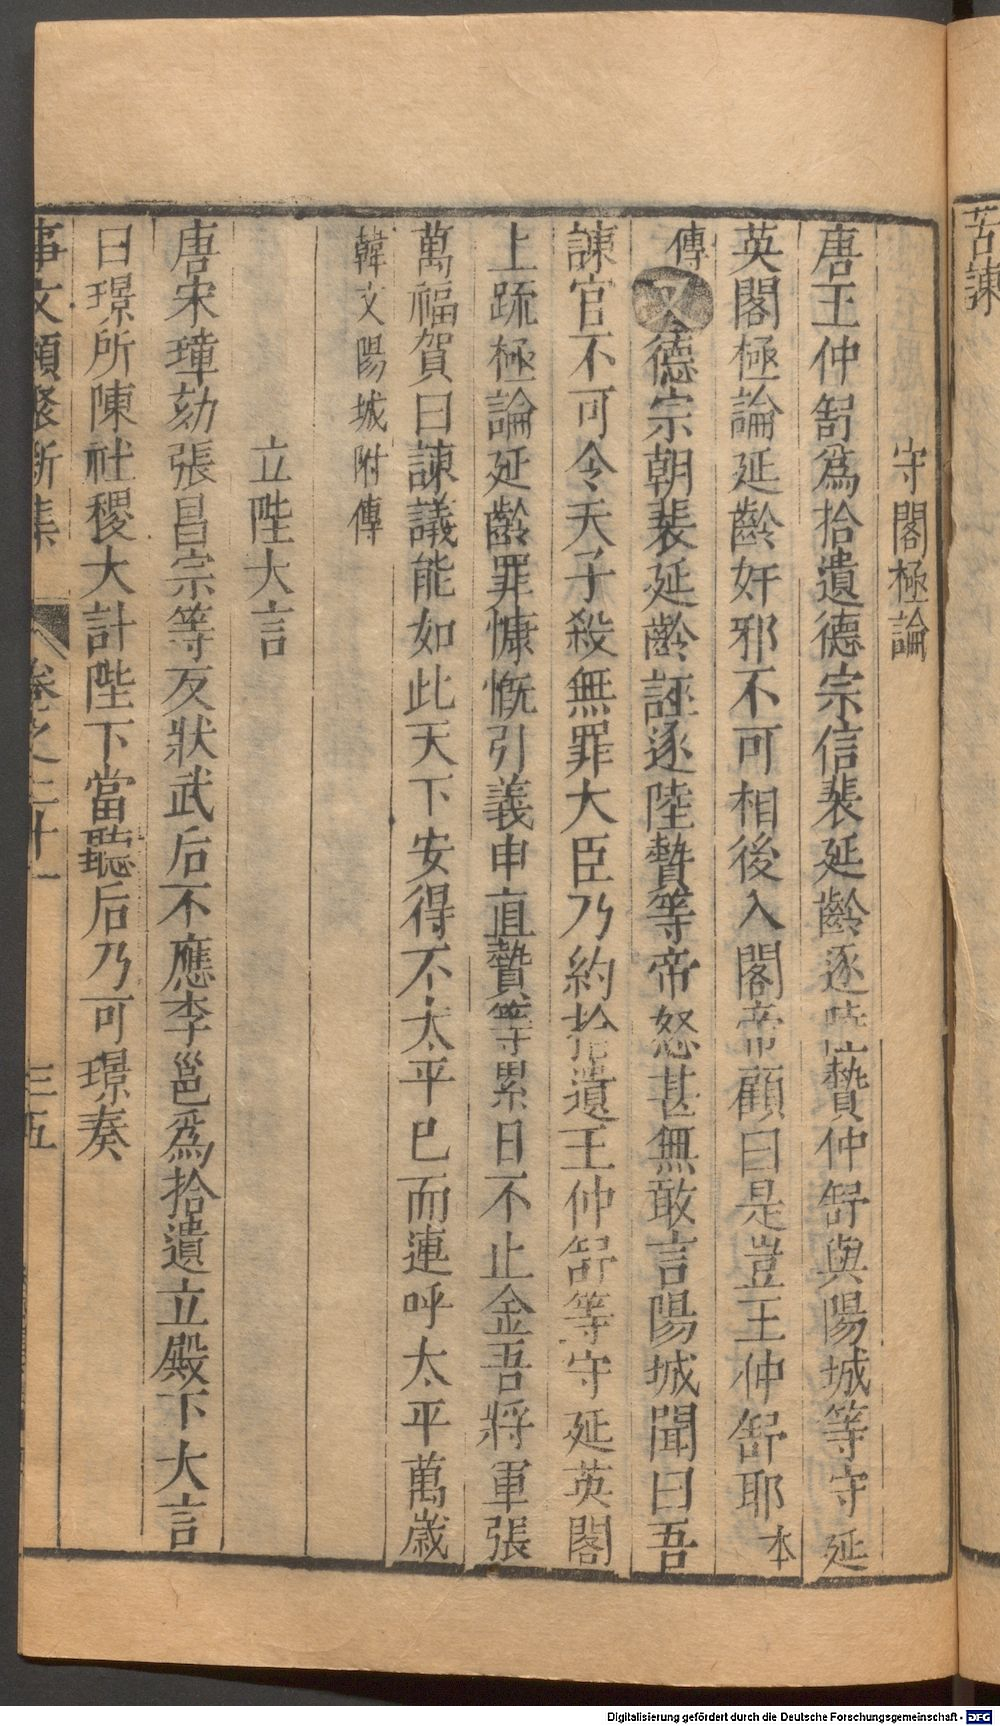 苦諫
守閣極論
唐王仲舒爲拾遺德宗信裴延齡逐陸贄仲舒與陽城等守延
英閣極論延齡奸邪不可相後入閣帝顧曰是豈王仲舒耶本
傳又德宗朝裴延齡誣逐陸贄等帝怒甚無敢言陽城聞曰吾
諫官不可令天子殺無罪大臣乃約拾遺王仲舒等守延英閣
上疏極論延齡罪慷慨引義申直贄等累日不止金吾將軍張
萬福賀曰諫議能如此天下安得不太平已而連呼太平萬歲
韓文陽城附傳
立陛大言
唐宋璋劾張昌宗等反狀武后不應李邕爲拾遺立殿下大言
曰璟所陳社稷大計陛下當聽后乃可璟奏
事文類聚新集 卷之二十一 三五
Digitalisierung gefördert durch die Deutsche Forschungsgemeinschaft - DFG